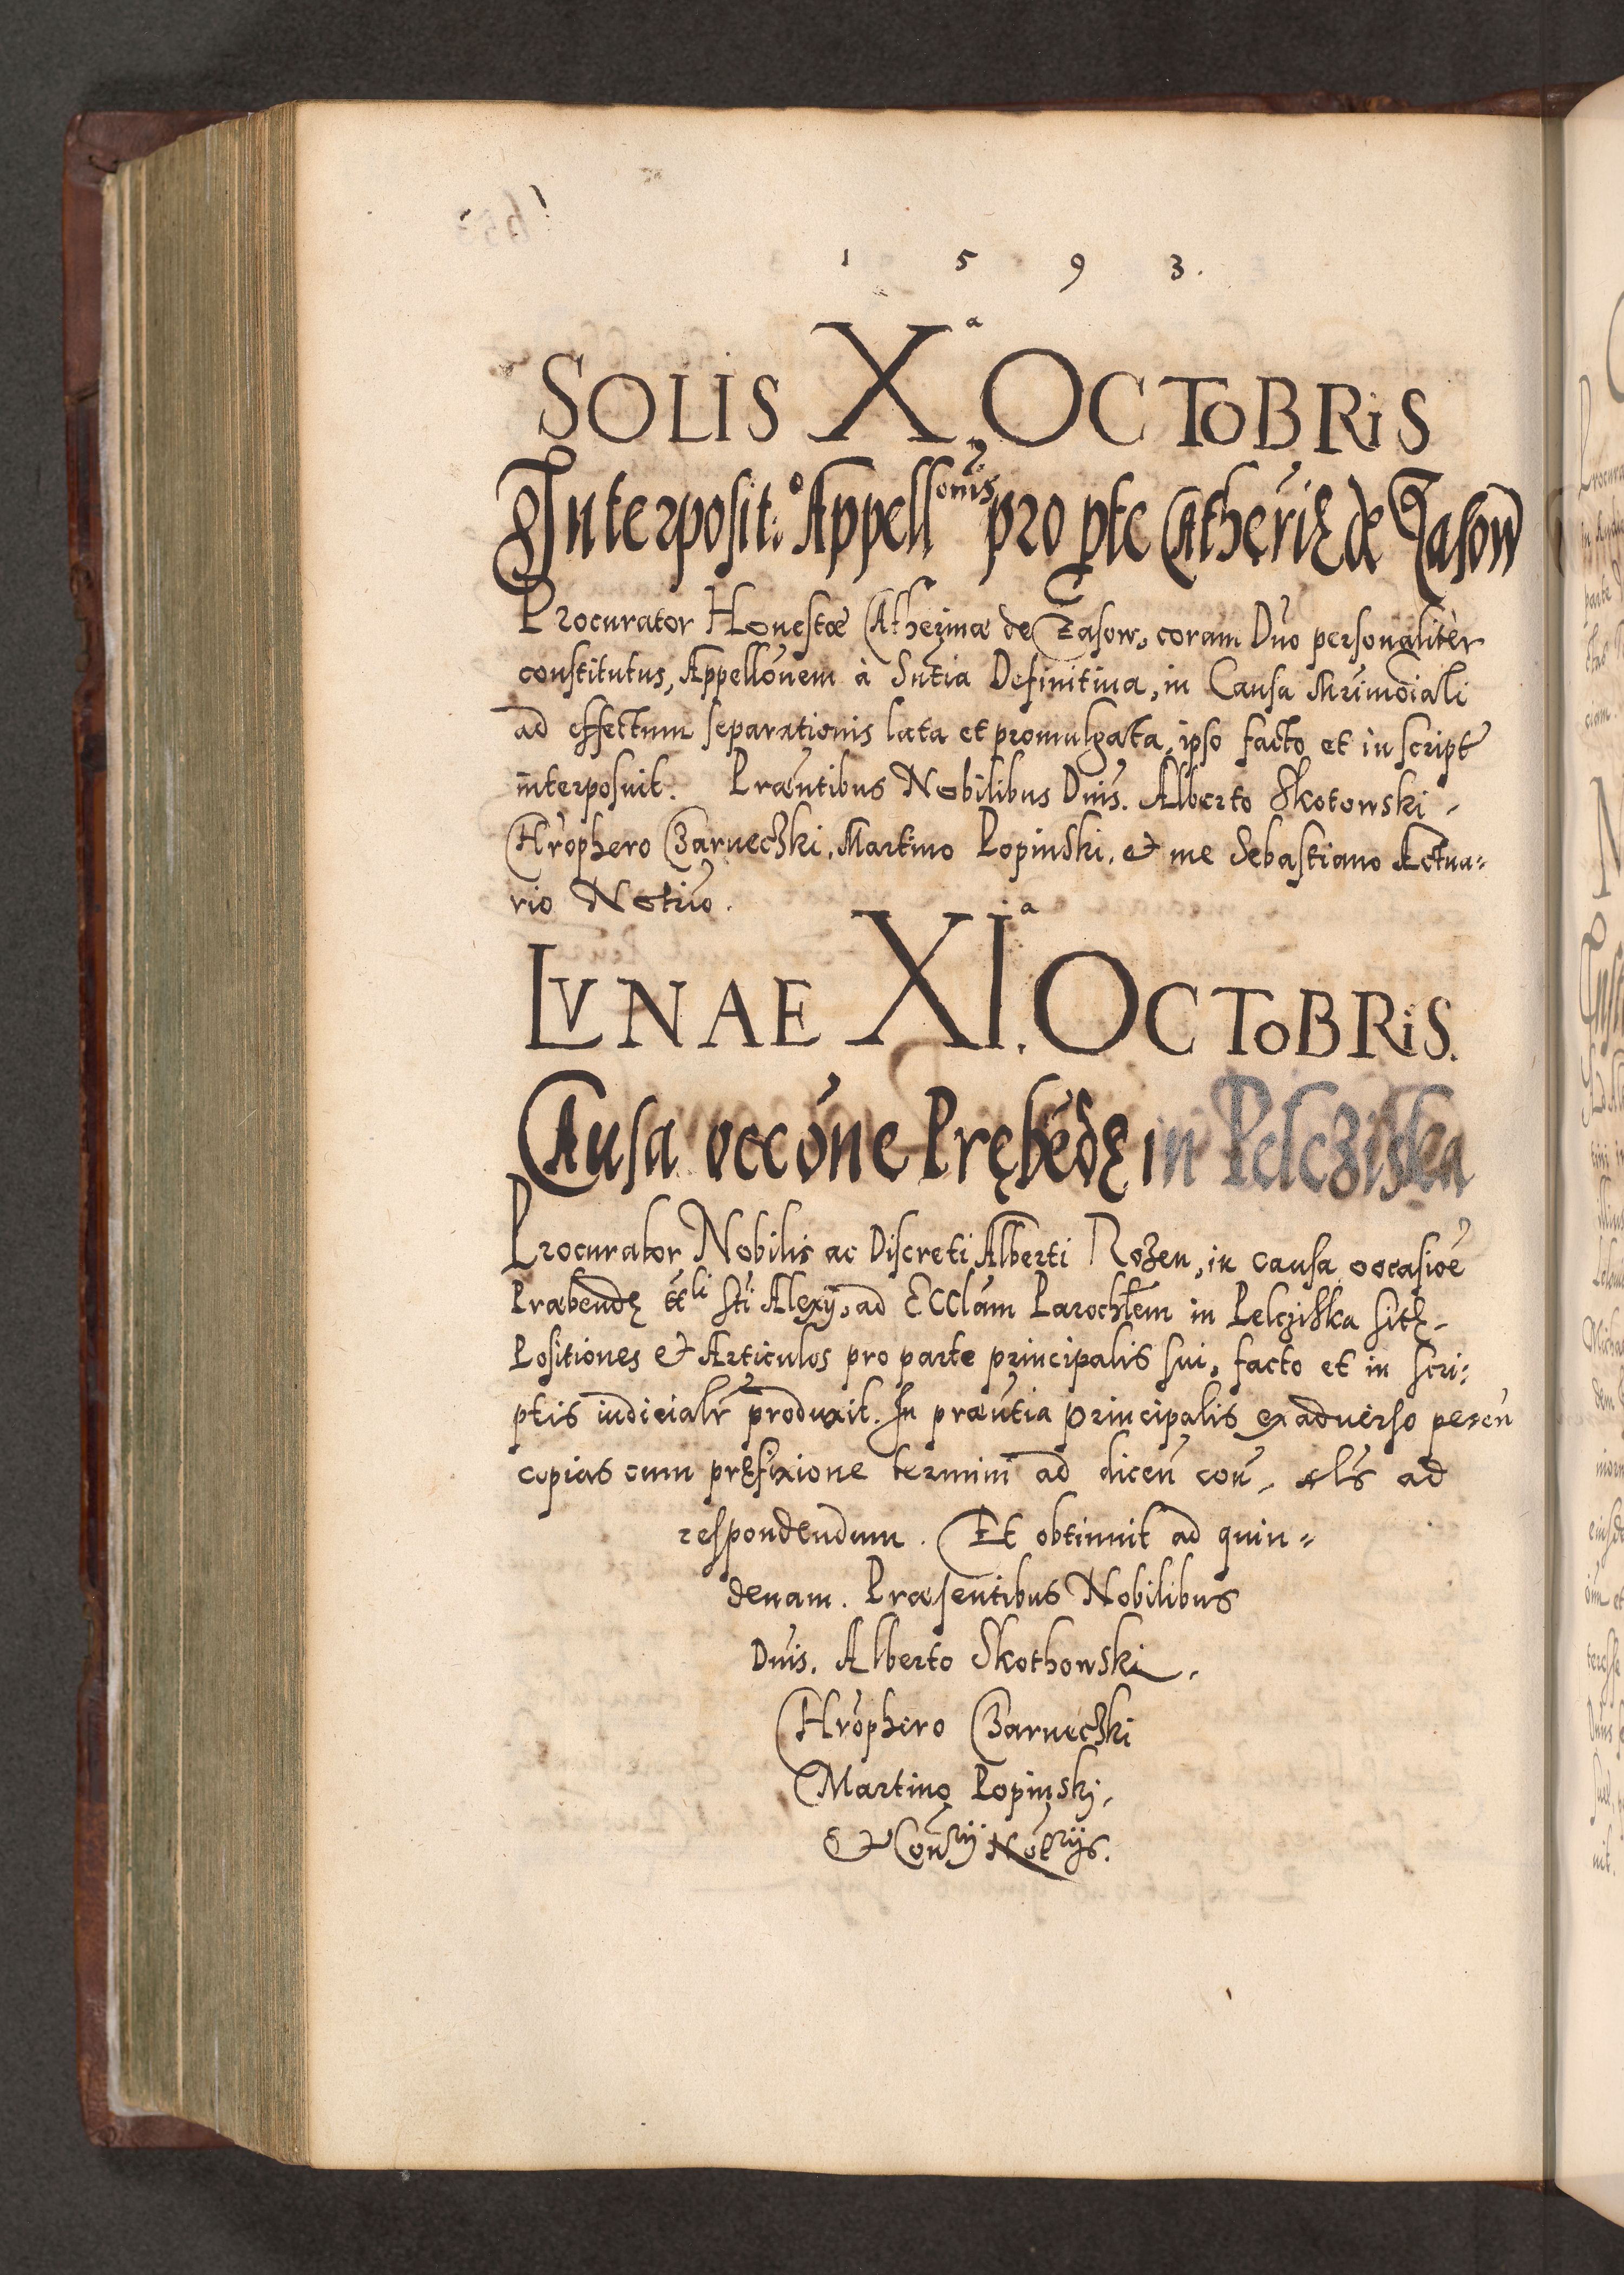 1 5 9 3.
SOLIS X.ª OCTOBRIS
Interposit:º Appell^onis pro pte Catherię de Zasow
Procurator Honestæ Catherinæ de Zasow, coram Dno personaliter
constitutus, Appellõnem à Sñtia Definitiua, in Causa Mr̃imoniali
ad effectum separationis lata et promulgata, ipso facto et in script
interposuit. Præñtibus Nobilibus Dnis. Alberto Skotowski
Chrõphero Czarneczki, Martino Popinski, et me Sebastiano Actua=
rio Notrio.
LVNAE XI.ª OCTOBRIS.
Causa occõne Prębẽdę in Pelcziska
Procurator Nobilis ac Discreti Alberti Rozen, in causa occasioẽ
Præbendę Sti Alexij, ad Ecclãm Parochlem in Pelcziska sitę
Positiones et Articulos pro parte principalis sui, facto et in scri=
ptis iudicialr produxit. In præñtia principalis ex aduerso peteñ
copias cum pręfixione termini ad diceñ coñ, als ad
respondendum. Et obtinuit ad quin=
denam. Præsentibus Nobilibus
Dnis. Alberto Skothowski
Chrõphero Czarneczki
Martino Popinski,
et Coñrij Notrijs.